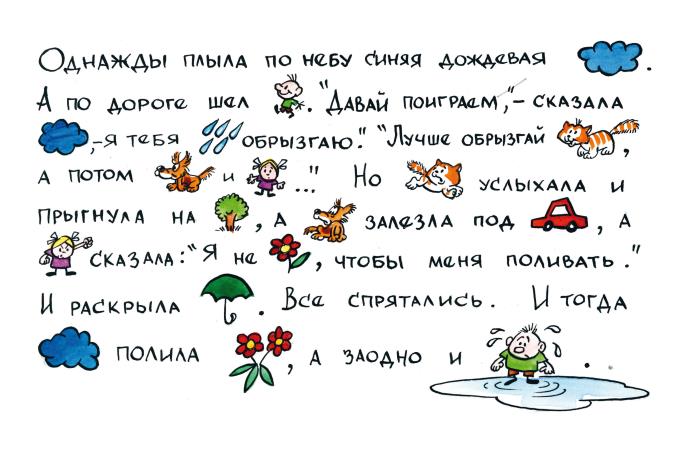 Однажды плыла по небу синяя дождевая .
А по дороге шел . "Давай поиграем",- сказала
,-я тебя обрызгаю." "Лучше обрызгай ,
а потом и ..." Но услыхала и
прыгнула на , а залезла под , а
сказала: "Я не , чтобы меня поливать."
И раскрыла . Все спрятались. И тогда
полила , а заодно и .